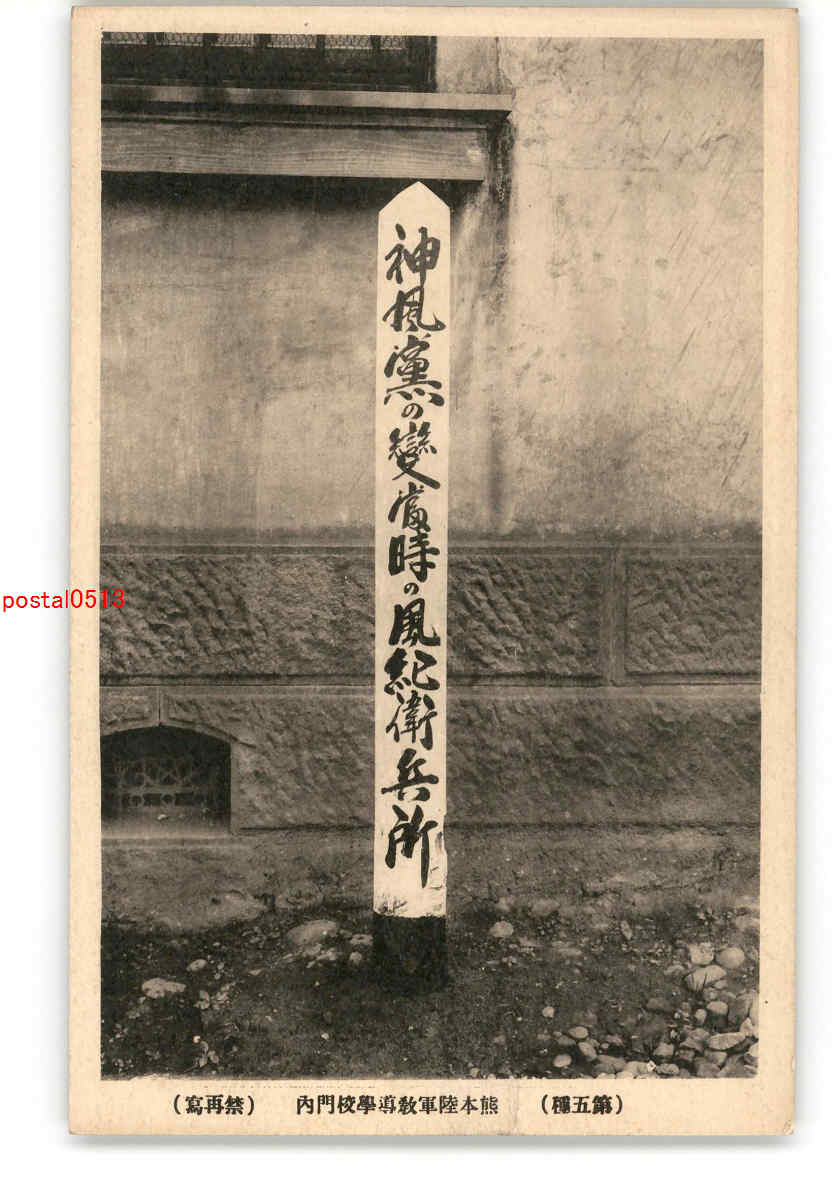 神風黨の變當時の風紀衛兵所
postal0513
（禁再寫） 熊本陸軍敎導學校門內 （第五種）